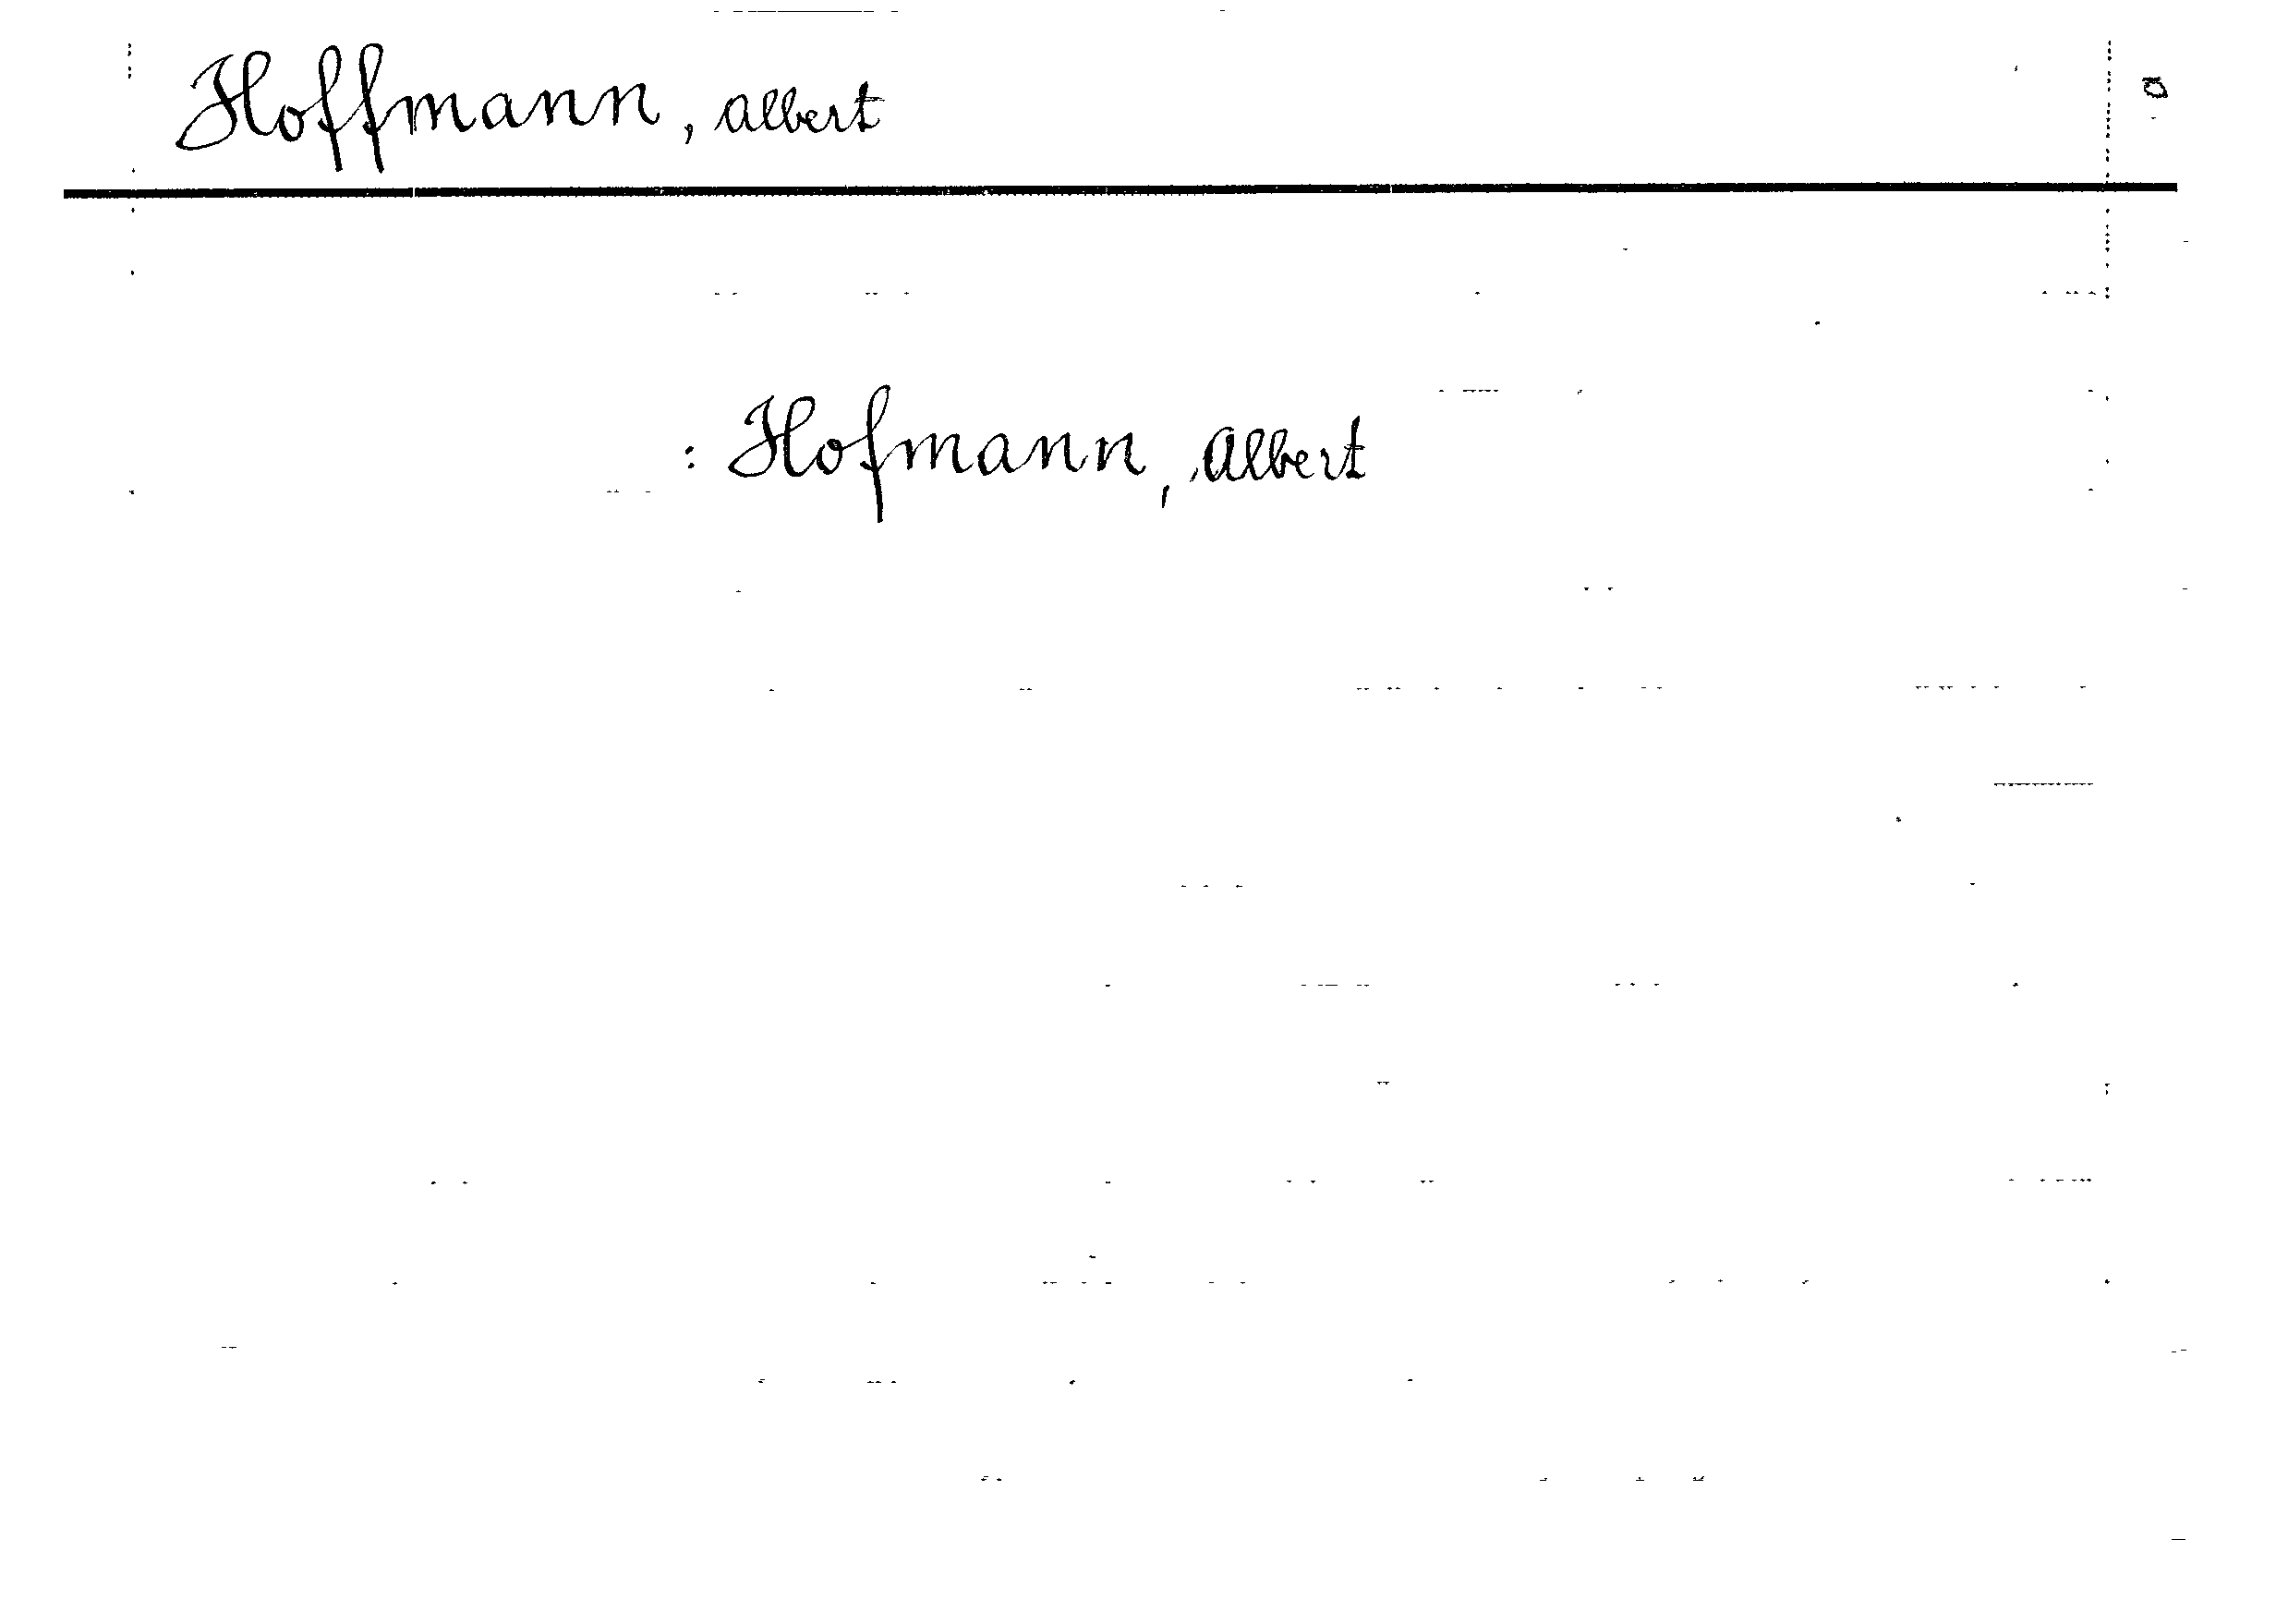 Hoffmann, Albert
: Hofmann, Albert